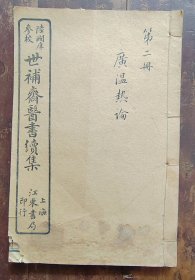 第二冊
廣温熱論
陸潤庠
參校
世補齋醫書續集
上海
江東書局
印行